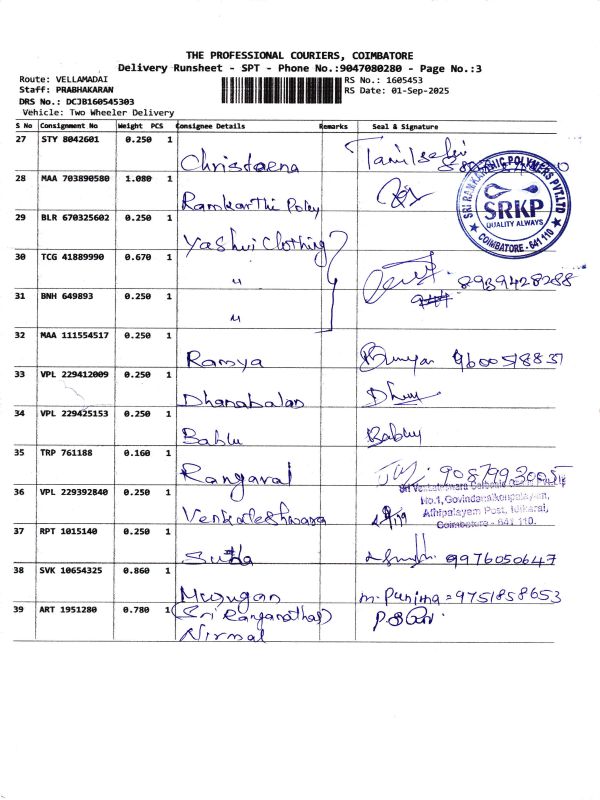 THE PROFESSIONAL COURIERS, COIMBATORE
Delivery Runsheet - SPT - Phone No.:9047080280 - Page No.:3
Route: VELLAMADAI
RS No.: 1605453
Staff: PRABHAKARAN
RS Date: 01-Sep-2025
DRS No.: DCJB160545303
Vehicle: Two Wheeler Delivery
S No Consignment No Weight PCS Consignee Details Remarks Seal & Signature
27 STY 8042601 0.250 1 Christeena Tamilselvi
28 MAA 703890580 1.080 1 Ramkarthi Poley
SRI RAMKARTHIC POLYMERS PVT.LTD
SRKP
QUALITY ALWAYS
COIMBATORE - 641 110
29 BLR 670325602 0.250 1 Yashvi Clothing
30 TCG 41889990 0.670 1 " 8939428288
31 BNH 649893 0.250 1 "
32 MAA 111554517 0.250 1 Ramya 9600518837
33 VPL 229412009 0.250 1 Dhanabalan
34 VPL 229425153 0.250 1 Bablu Babluy
35 TRP 761188 0.160 1 Rangaraj
36 VPL 229392840 0.250 1 Venkateshwara
No.1, Govindanaickenpalayam,
Athipalayam Post, Idikarai,
Coimbatore - 641 110.
37 RPT 1015140 0.250 1 Sudha 9976050647
38 SVK 10654325 0.860 1 Murugan m. Purnima = 9751858653
39 ART 1951280 0.780 1 (Sri Ranganathar)
Nirmal